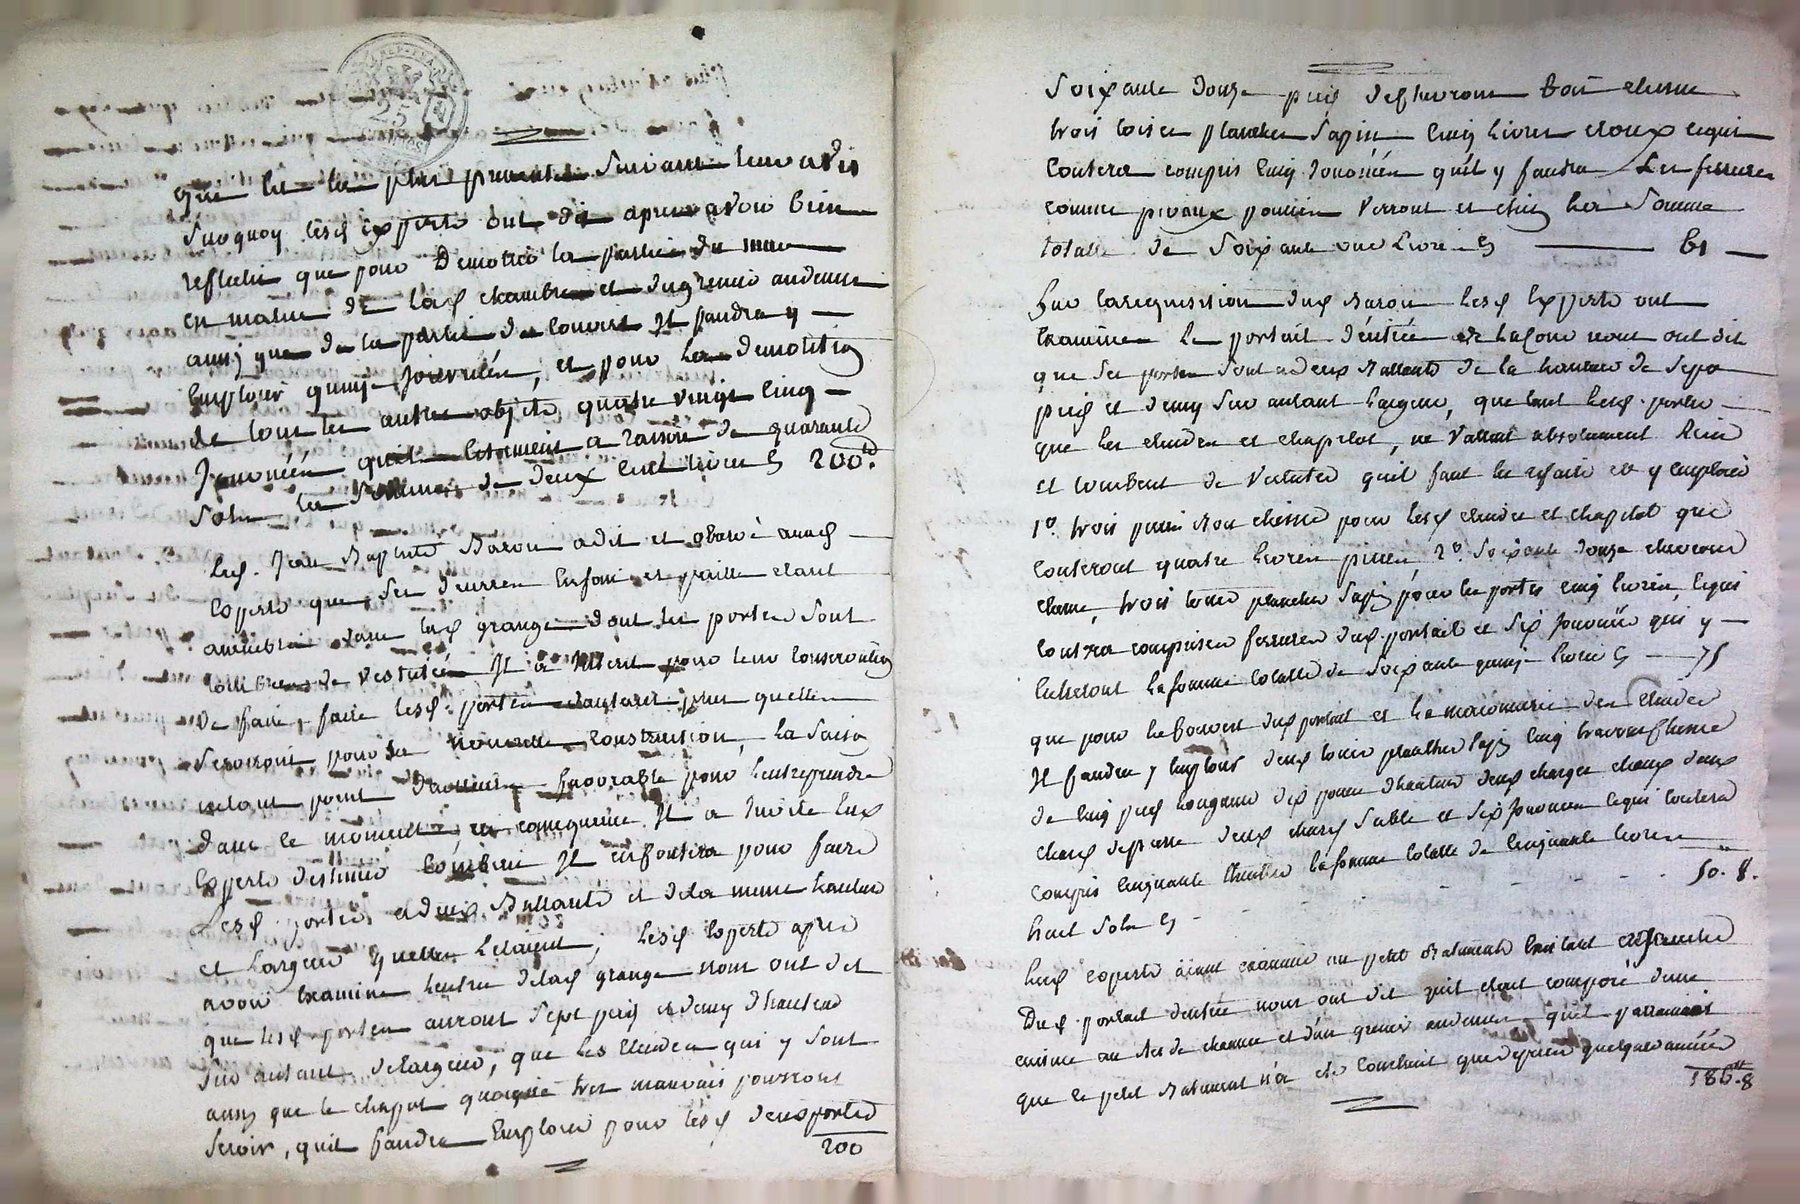 25
que les la plus prudente suivant leur avis
surquoy lesd experts ont dit apres avoir bien
reflechi que pour Demolir la partie du mur
en matin de lad chambre et du grenier audessus
ainsi que de la partie du couvert Il faudra y
Employer quinze Journées, et pour la demolition
de tous les autres objets quatre vingt cinq
Journées quils Estiment a raison de quarante
sols la somme de deux cent livres 200tt.
led. Jean Baptiste Baron a dit et observé auxd
Experts que ses denrées Enfoin et paille etant
dans lad grange dont les portes sont
de vestuté Il a Interet pour leur conservation
de faire, faire lesd. portes dautant plus quelles
serviront pour la nouvelle construction, la saison
netant point favorable pour Lentreprendre
dans le moment, en consequence Il a Invité Lesd
Experts destimer combien Il en Coutera pour faire
Lesd. portes a deux Battants et de la meme hauteur
et Largeur quelles Letaient, Lesd Experts apres
avoir Examiné Lentrée delad grange nous ont dit
que lesd portes auront Sept pieds et demy dhauteur
sur autant delargeur, que les Elindes qui y sont
ainsi que le chapit quoique tres mauvais pourront
servir, quil faudra Employer pour lesd deux portes
200
Soixante Douze pieds de chevrons Bois chesne
trois toises planches Sapin Cinq Livres cloux cequi
Coutera compris Cinq Journées quil y faudra Les ferrures
comme pivaux Verroux et la Somme
totalle de Soixante une Livres 61
Sur larequisition dud Baron Lesd Experts ont
Examiné Le portail dentrée de La Cour nous ont dit
que ses portes sont a deux Battants de la hauteur de Sept
pieds et demy sur autant Largeur, que tant Lesd. portes
que les elindes et chapitot, ne Vallent absolument Rien
et tombent de Vestuté quil faut les refaire et y employer
1o. trois pieces Bois chesne pour lesd elindes et chapitot que
Couteront quatre livres pieces, 2o. Soixante Douze chevrons
chesne, trois toises planches Sapin pour les portes cinq livres, cequi
coutera comprises ferrures dud. portail et Six Journées qui y
Entreront la somme totalle de Soixante quinze livres 75
que pour le Couvert dud portail et la massonnerie des Elindes
Il faudra y Employer deux toises planches sapin cinq travons chesne
de cinq pieds Longueur dix pouces dhauteur deux charges chaux deux
chars depierre deux chars Sable et Six Journées cequi Coutera
compris Cinquante thuilles la somme totalle de Cinquante livres
huit sols 50. 8.
Lesd experts aiant examiné un petit Batiment Existant
Dud. portail dentrée nous ont dit quil etait composé dune
cuisine au Rez de chaussée et dun grenier audessus quil paraissait
que ce petit Batiment n'a eté Construit que depuis quelques années
186.8